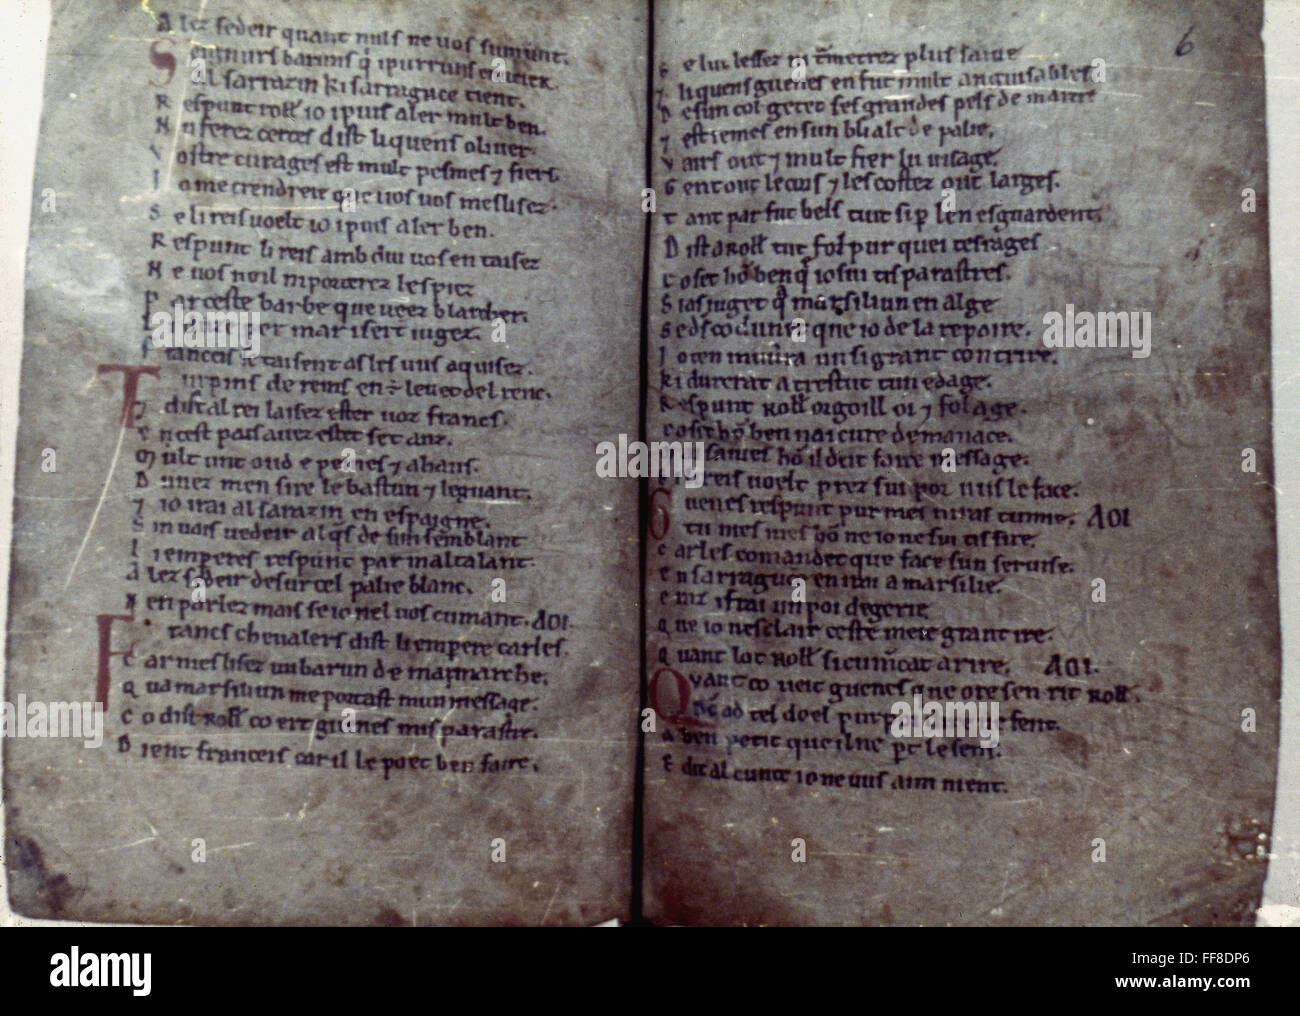 Alez sedeir quant nuls ne vos sumunt.
Seignurs baruns q̄ ipurruns enveier
al sarrazin ki sarraguce tient.
Respunt roll̄ io ipuis aler mult ben.
Nu ferez certes dist li quens oliver.
Vostre curages est mult pesmes ⁊ fiers
Io me crendreie que vos vos meslisez.
Se li reis voelt io ipuis aler ben.
Respunt li reis ambdui vos en taisez
Ne vos ne il nporterez les piez
Par ceste barbe que veez blancher.
Li duze per mar i sert iugez.
Franceis se taisent as les vus aquisez.
Turpins de reins en ÷ levet del renc.
⁊ dist al rei laisez ester voz francs.
En cest pais avez estet set anz.
Mult unt oud e peines ⁊ ahans.
Dunez men sire le bastun ⁊ le guant.
⁊ io irai al sarazin en espaigne.
Sin vois vedeir alq̄s de sun semblant
Li emperes respunt par maltalant.
Alez sedeir desur cel palie blanc.
Nen parlez mais se io nel vos cumant. AOI.
Francs chevalers dist li empere carles.
Car meslisez un barun de ma marche.
Qua marsiliun me portast mun message.
Co dist roll̄ co ert guenes mis parastre.
Dient franceis car il le poet ben faire.
6
Se lui lessez ni trametrez plus saive
⁊ li quens guenes en fut mult anguisables
De sun col getet ses grandes pels de martre
⁊ est remes en sun blialt de palie.
Vairs out ⁊ mult fier lu visage.
Gent out le cors ⁊ les costez out larges.
Tant par fut bels tuit si per len esguardent.
Dist a roll̄ tut fol pur quei tesrages
Co set hō ben q̄ io sui tis parastres.
Si as iuget q̄ marsiliun en alge
Se ds̄ co dunet que io de la repaire.
Io ten muvra un si grant contrire.
Ki durerat a trestut tun edage.
Respunt roll̄ orgoill oi ⁊ folage.
Co set hō ben nai cure de manace.
Mai saives hō il deit faire message.
Si li reis voelt prez sui por vus le face.
Guenes respunt pur mei niras tu mie. AOI
Tu nies mes hō ne io ne sui tis sire.
Carles comandet que face sun servise.
En sarraguce en irai a marsilie.
Einz i frai un poi de gerie
Que io nesclair ceste meie grant ire.
Quant lot roll̄ si cumēcat a rire. AOI.
Quant co veit guenes que ore sen rit roll̄.
Dūc ad tel doel pur poi dire ne fent.
A ben petit que il ne pert le sens.
E dit al cunte io ne vus aim nient.
alamy
alamy
Image ID: FF8DP6
www.alamy.com